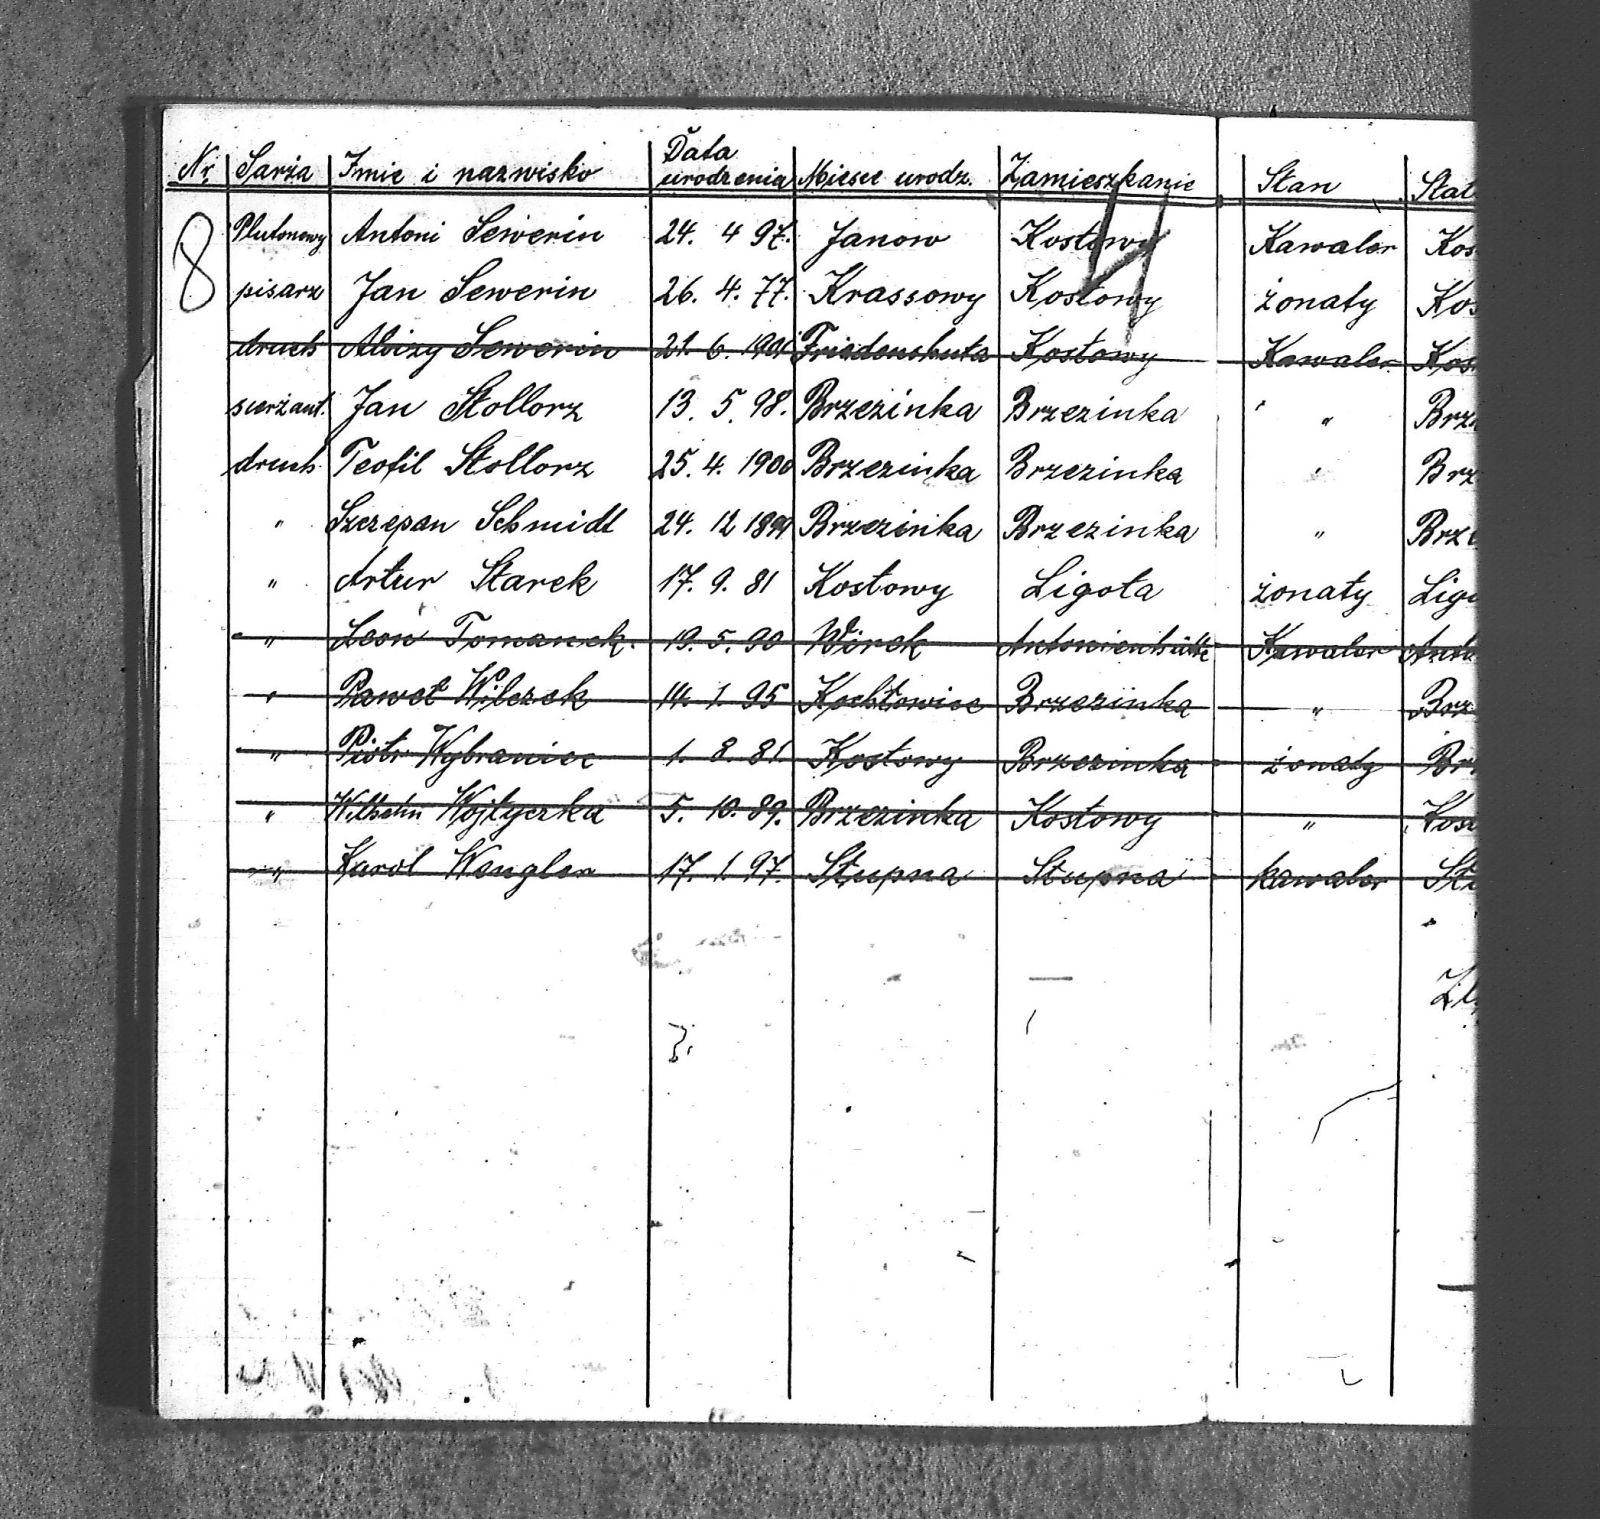 Nr. Sarża Imie i nazwisko Data urodzenia Miesce urodz. Zamieszkanie Stan Stał
8 Plutonowy Antoni Sewerin 24. 4 97. Janow Kostowy Kawaler Kos
pisarz Jan Sewerin 26. 4. 77. Krassowy Kostowy żonaty Kos
druch Aloizy Sewerin 21. 6. 1901 Friedenshuta Kostowy Kawaler Kos
sierżant. Jan Stollorz 13. 5. 98. Brzezinka Brzezinka " Brz
druch Teofil Stollorz 25. 4. 1900 Brzezinka Brzezinka " Brz
" Szczepan Schmidt 24. 12 Brzezinka Brzezinka " Brze
" Artur Starek 17. 9. 81 Kostowy Ligota żonaty Lig
" Leon Tomanek. 19. 5. 90 Wirek Antonienhütte Kawaler Anto
" Paweł Wilczek 14. 1. 95 Kochłowice Brzezinka " Brz
" Piotr Wybraniec 1. 8. 81. Kostowy Brzezinka żonaty Br
" Wilhelm Wojtyczka 5. 10. 89. Brzezinka Kostowy " Kos
" Karol Wengler 17. 1. 97. Słupna Słupna kawaler Sł